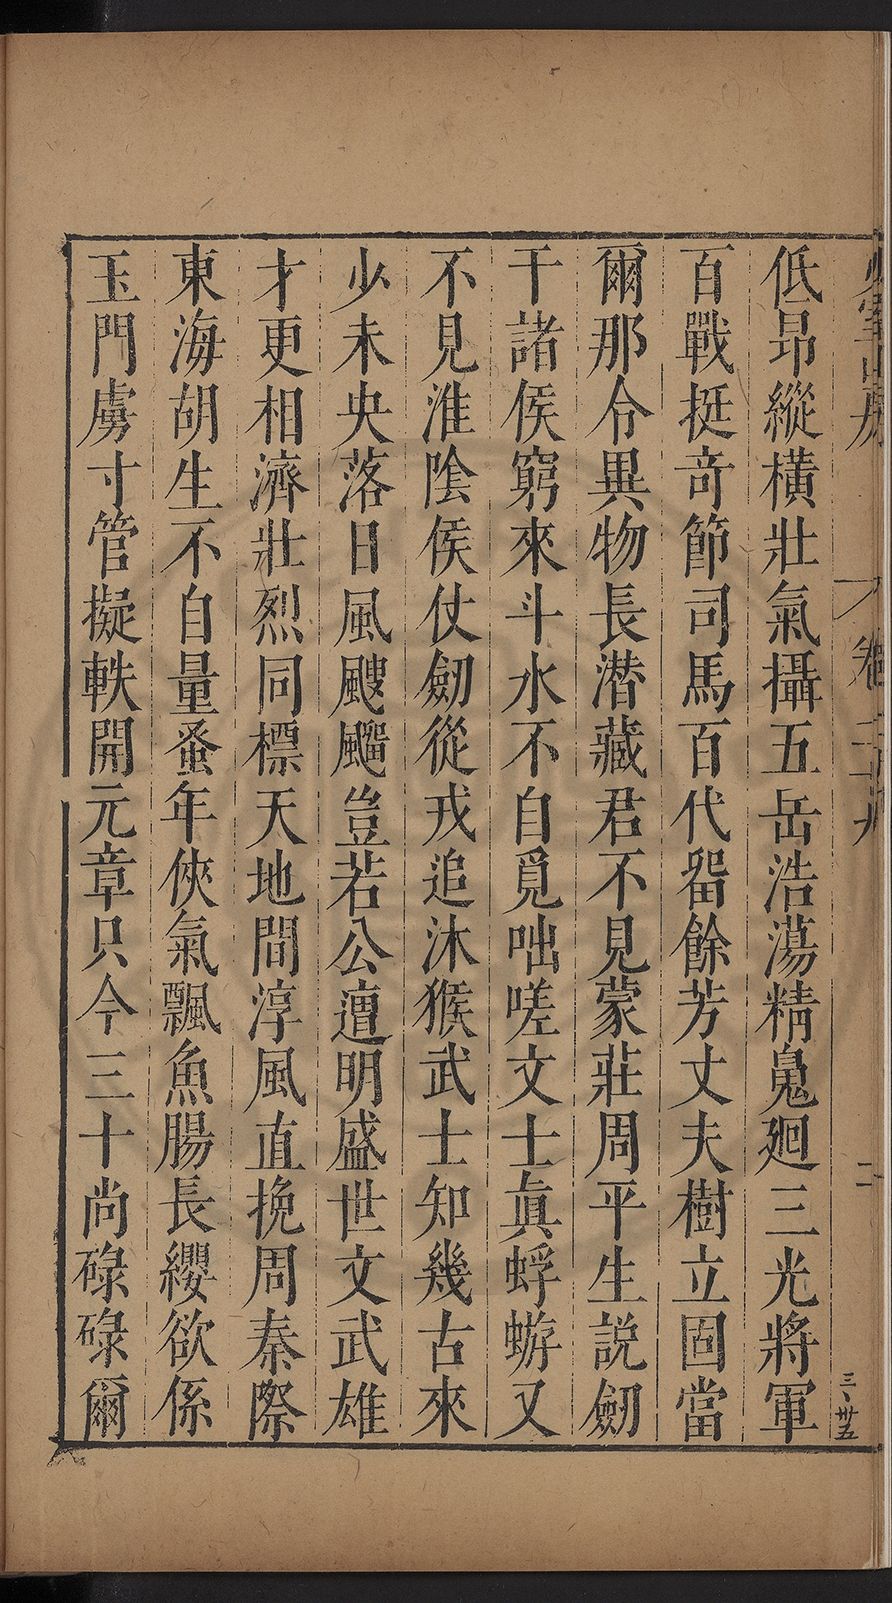 低昂縱橫壯氣攝五岳浩蕩精䰟廻三光將軍
百戰挺竒節司馬百代畱餘芳丈夫樹立固當
爾那令異物長潜藏君不見蒙莊周平生説劒
干諸侯窮來斗水不自覓咄嗟文士眞蜉蝣又
不見淮陰侯仗劒從戎追沐猴武士知幾古來
少未央落日風颼飀豈若公邅明盛世文武雄
才更相濟壯烈同標天地間淳風直挽周秦際
東海胡生不自量蚤年俠氣飄魚腸長纓欲係
玉門虜寸管擬軼開元章只今三十尚碌碌爾
二
三、卅五